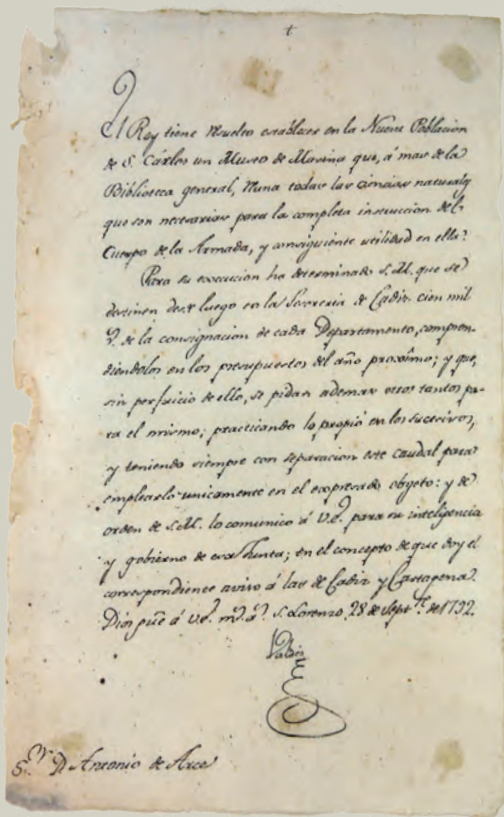 El Rey tiene resuelto establecer en la Nueva Poblacion
de S. Cárlos un Museo de Marina que, á mas de la
Biblioteca general, reuna todas las ciencias naturales
que son necesarias para la completa instruccion del
Cuerpo de la Armada, y consiguiente utilidad en ella.
Para su execucion ha determinado S.M. que se
destinen desde luego en la Tesoreria de Cadiz cien mil
de la consignacion de cada Departamento, compren-
diéndolos en los presupuestos del año proximo; y que,
sin perjuicio de ello, se pidan ademas otros tantos pa-
ra el mismo; practicando lo propio en los sucesivos,
y teniendo siempre con separacion este caudal para
emplearlo unicamente en el expresado objeto: y de
orden de S.M. lo comunico á V.E. para su inteligencia
y gobierno de esa Junta; en el concepto de que doy el
correspondiente aviso á las de Cadiz y Cartagena.
Dios gue. á V.E. ms. as. S. Lorenzo 28 de Septre. de 1792.
Valdés
Sr. Dn. Antonio de Arce